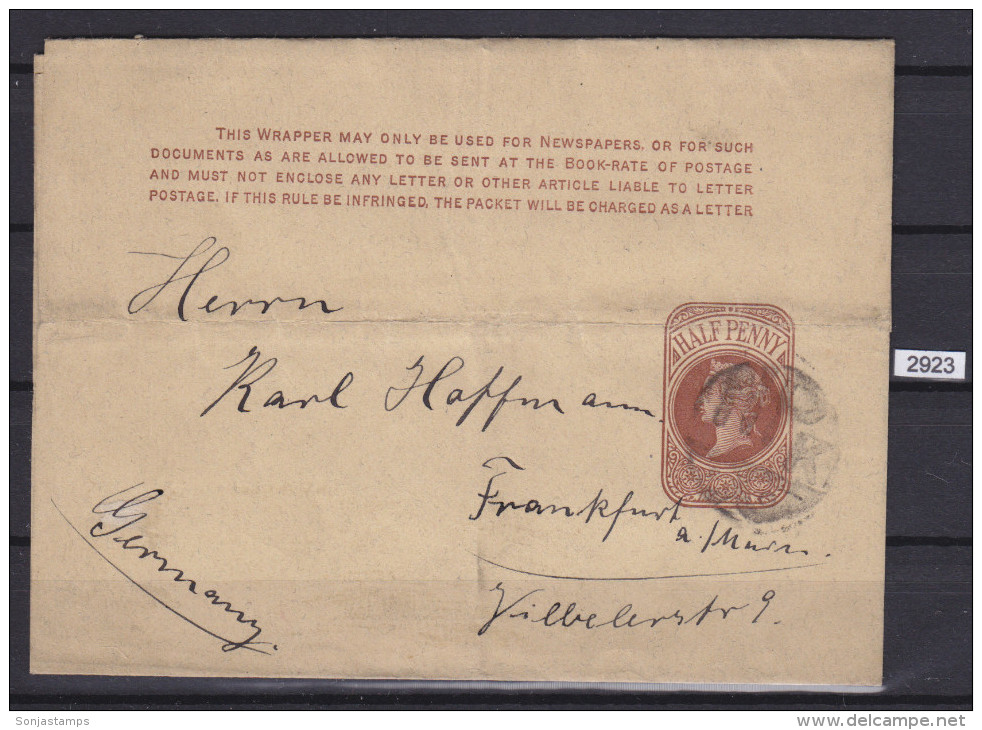 THIS WRAPPER MAY ONLY BE USED FOR NEWSPAPERS, OR FOR SUCH
DOCUMENTS AS ARE ALLOWED TO BE SENT AT THE BOOK-RATE OF POSTAGE
AND MUST NOT ENCLOSE ANY LETTER OR OTHER ARTICLE LIABLE TO LETTER
POSTAGE. IF THIS RULE BE INFRINGED, THE PACKET WILL BE CHARGED AS A LETTER
Herrn
HALF PENNY
2923
Karl Hoffmann
Frankfurt
a./Main.
Germany.
Vilbelerstr 9.
Sonjastamps
www.delcampe.net